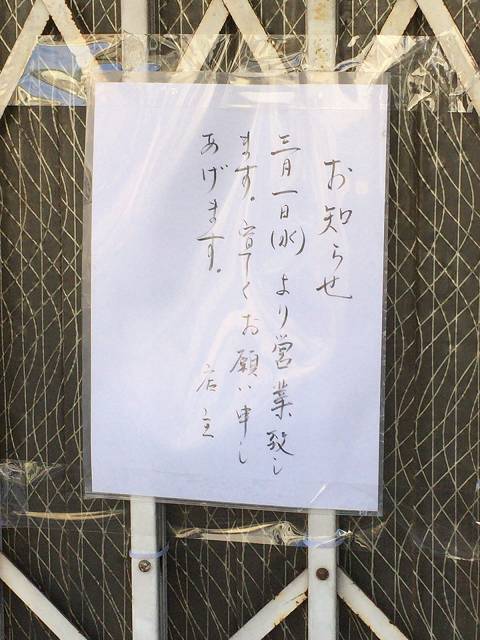 お知らせ
三月一日(水)より営業致し
ます。宜しくお願い申し
あげます。
店主